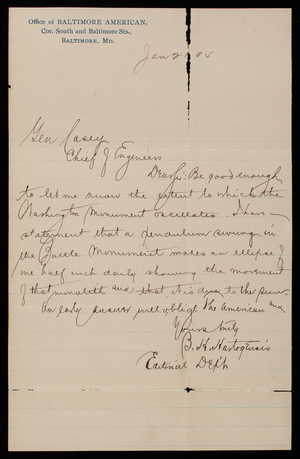 Office of BALTIMORE AMERICAN,
Cor. South and Baltimore Sts.,
BALTIMORE, MD.
Jan 2 94
Gen Casey
Chief of Engineers
Dear Sir: Be good enough
to let me know the extent to which the
Washington Monument oscilates. I have
statement that a pendulum swung in
the Battle Monument makes an ellipse of
one half inch daily showing the movement
of that monolith and that it is due to the sun.
An early answer will oblige The American and
Yours truly
B. H. Hartogensis
Editorial Dept